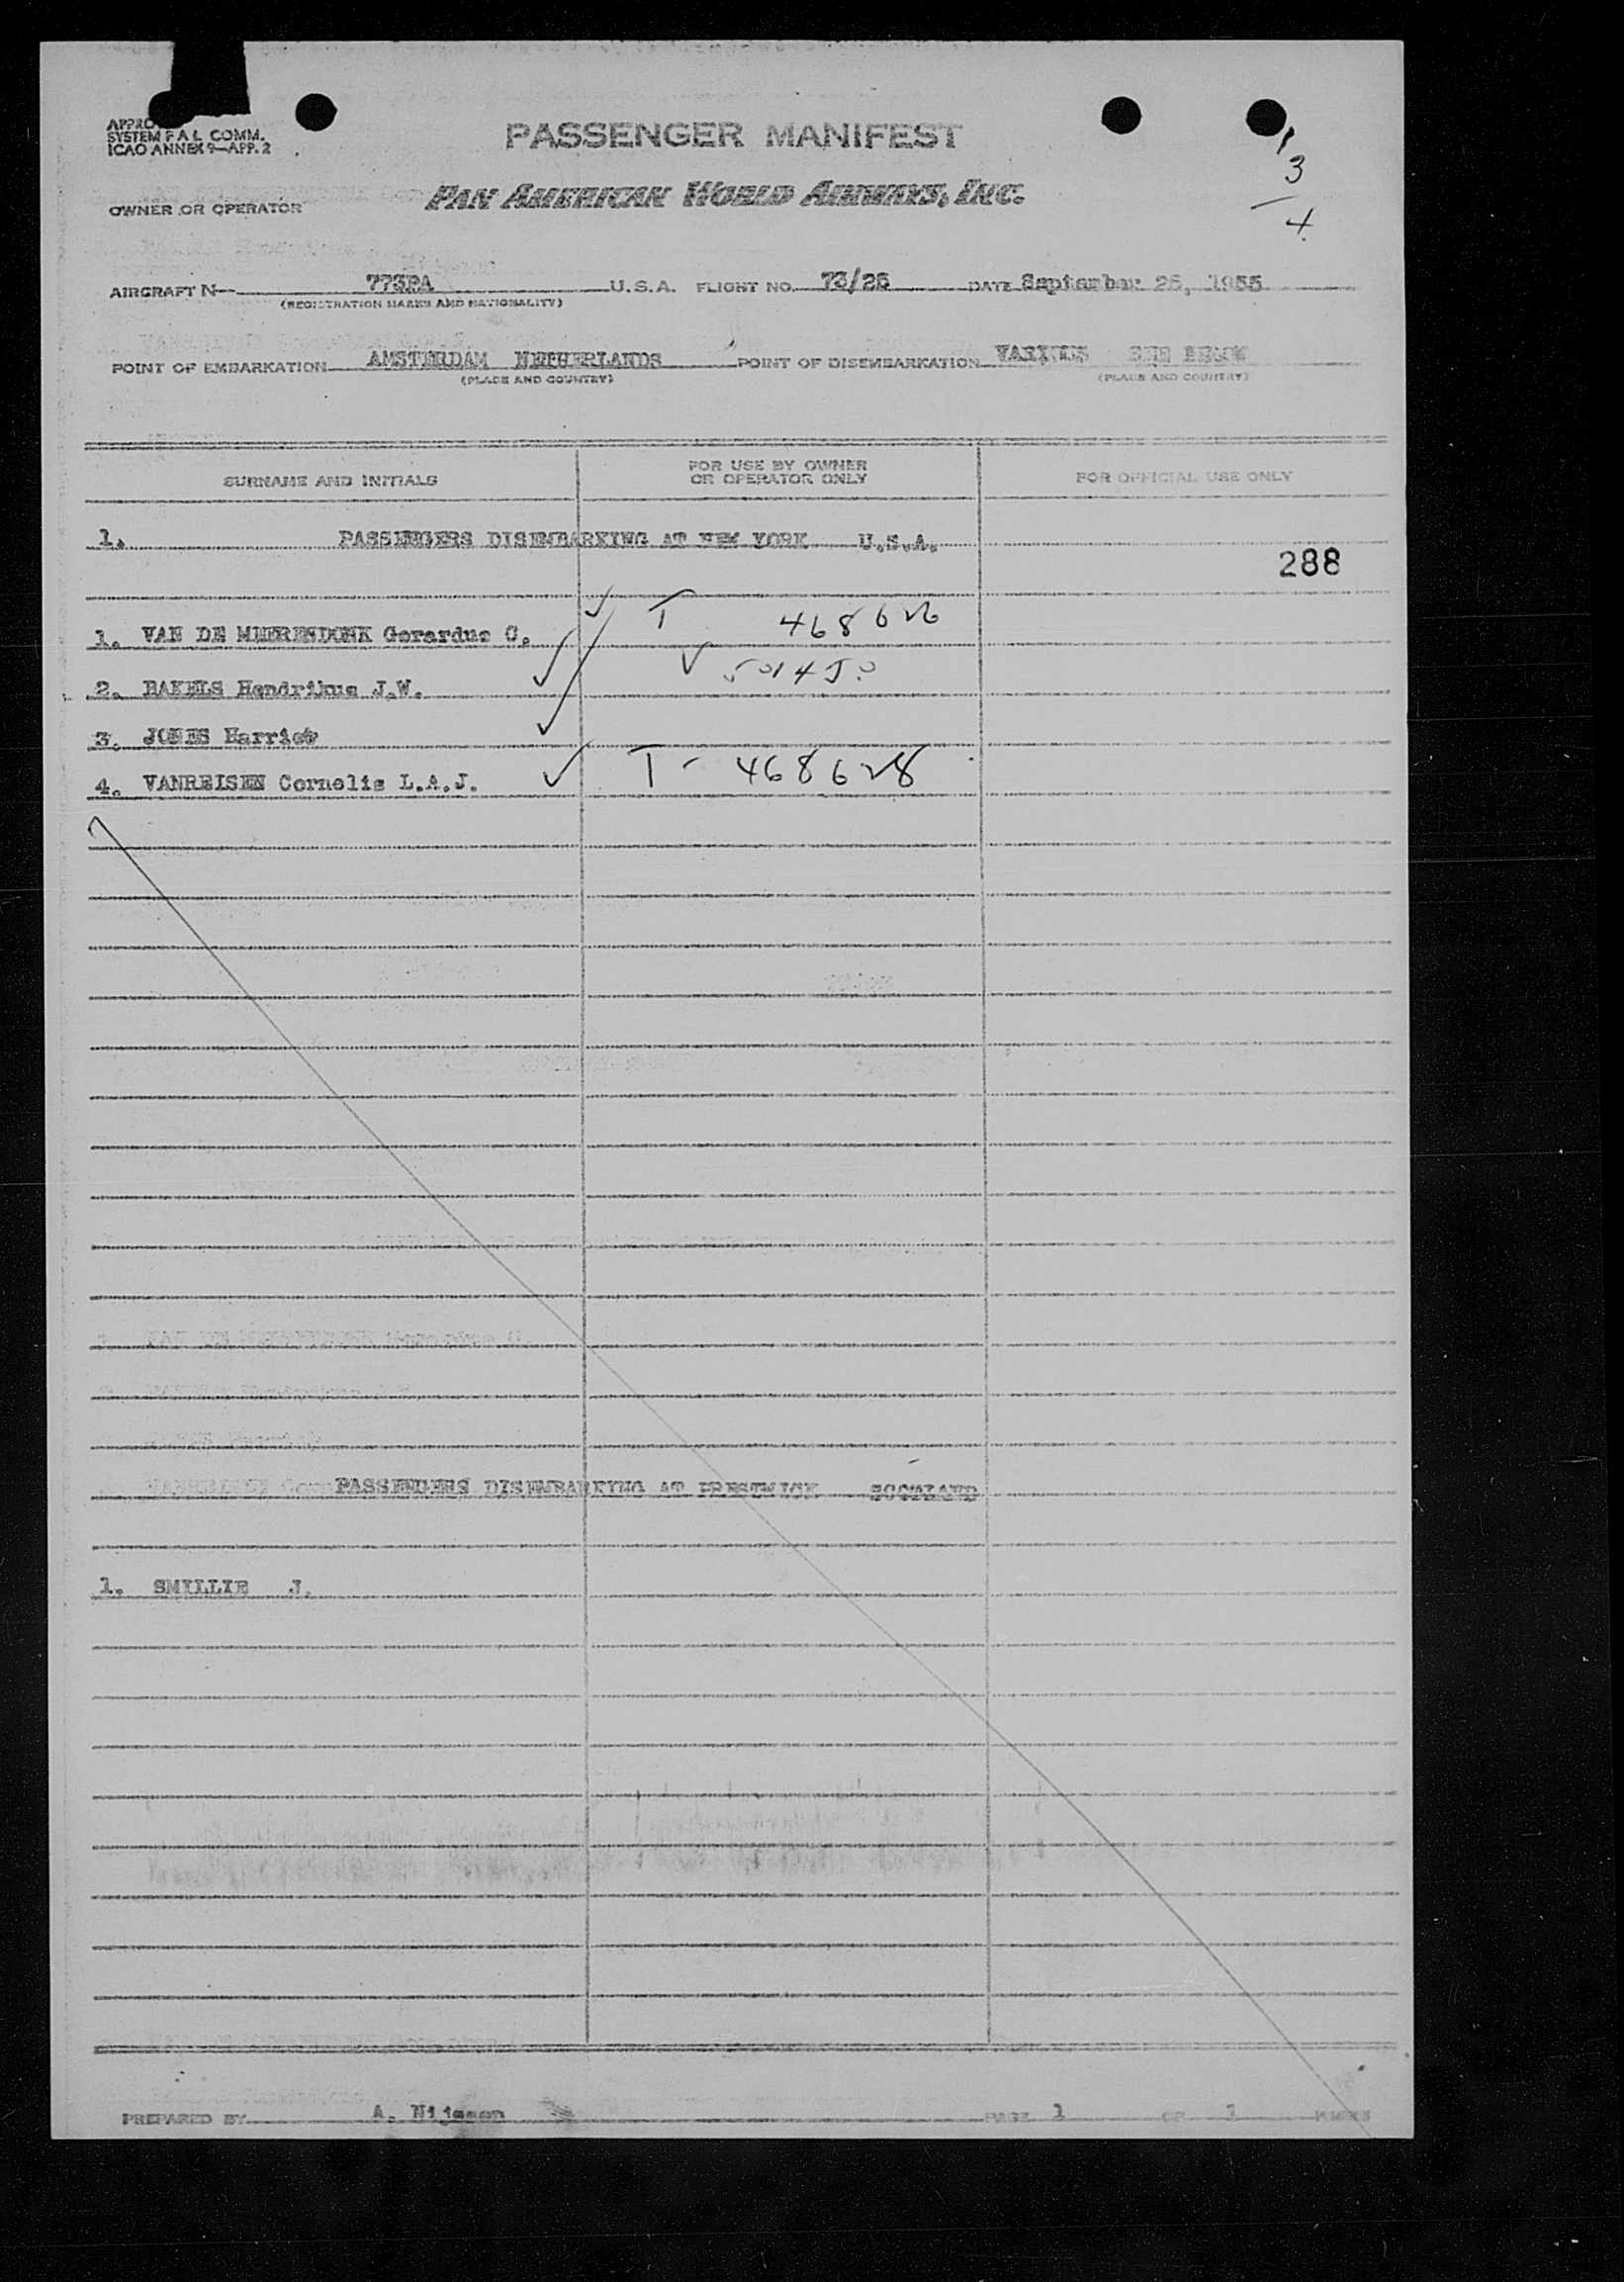 APPRO
SYSTEM F A L COMM.
ICAO ANNEX 9—APP. 2
PASSENGER MANIFEST
3
4
OWNER OR OPERATOR
PAN AMERICAN WORLD AIRWAYS, INC.
AIRCRAFT N 773PA U.S.A. FLIGHT NO. 73/25 DATE September 25, 1955
(REGISTRATION MARKS AND NATIONALITY)
POINT OF EMBARKATION AMSTERDAM NETHERLANDS POINT OF DISEMBARKATION VARIOUS SEE BELOW
(PLACE AND COUNTRY) (PLACE AND COUNTRY)
SURNAME AND INITIALS FOR USE BY OWNER OR OPERATOR ONLY FOR OFFICIAL USE ONLY
1. PASSENGERS DISEMBARKING AT NEW YORK U.S.A.
288
1. VAN DE MEERENDONK Gerardus C. T 468626
2. BAKELS Hendrikus J.W. 501450
3. JONES Harriet
4. VANREISEN Cornelis L.A.J. T - 468628
PASSENGERS DISEMBARKING AT PRESTWICK SCOTLAND
1. SMILLIE J.
PREPARED BY A. Nijssen PAGE 1 OF 1 PAGES